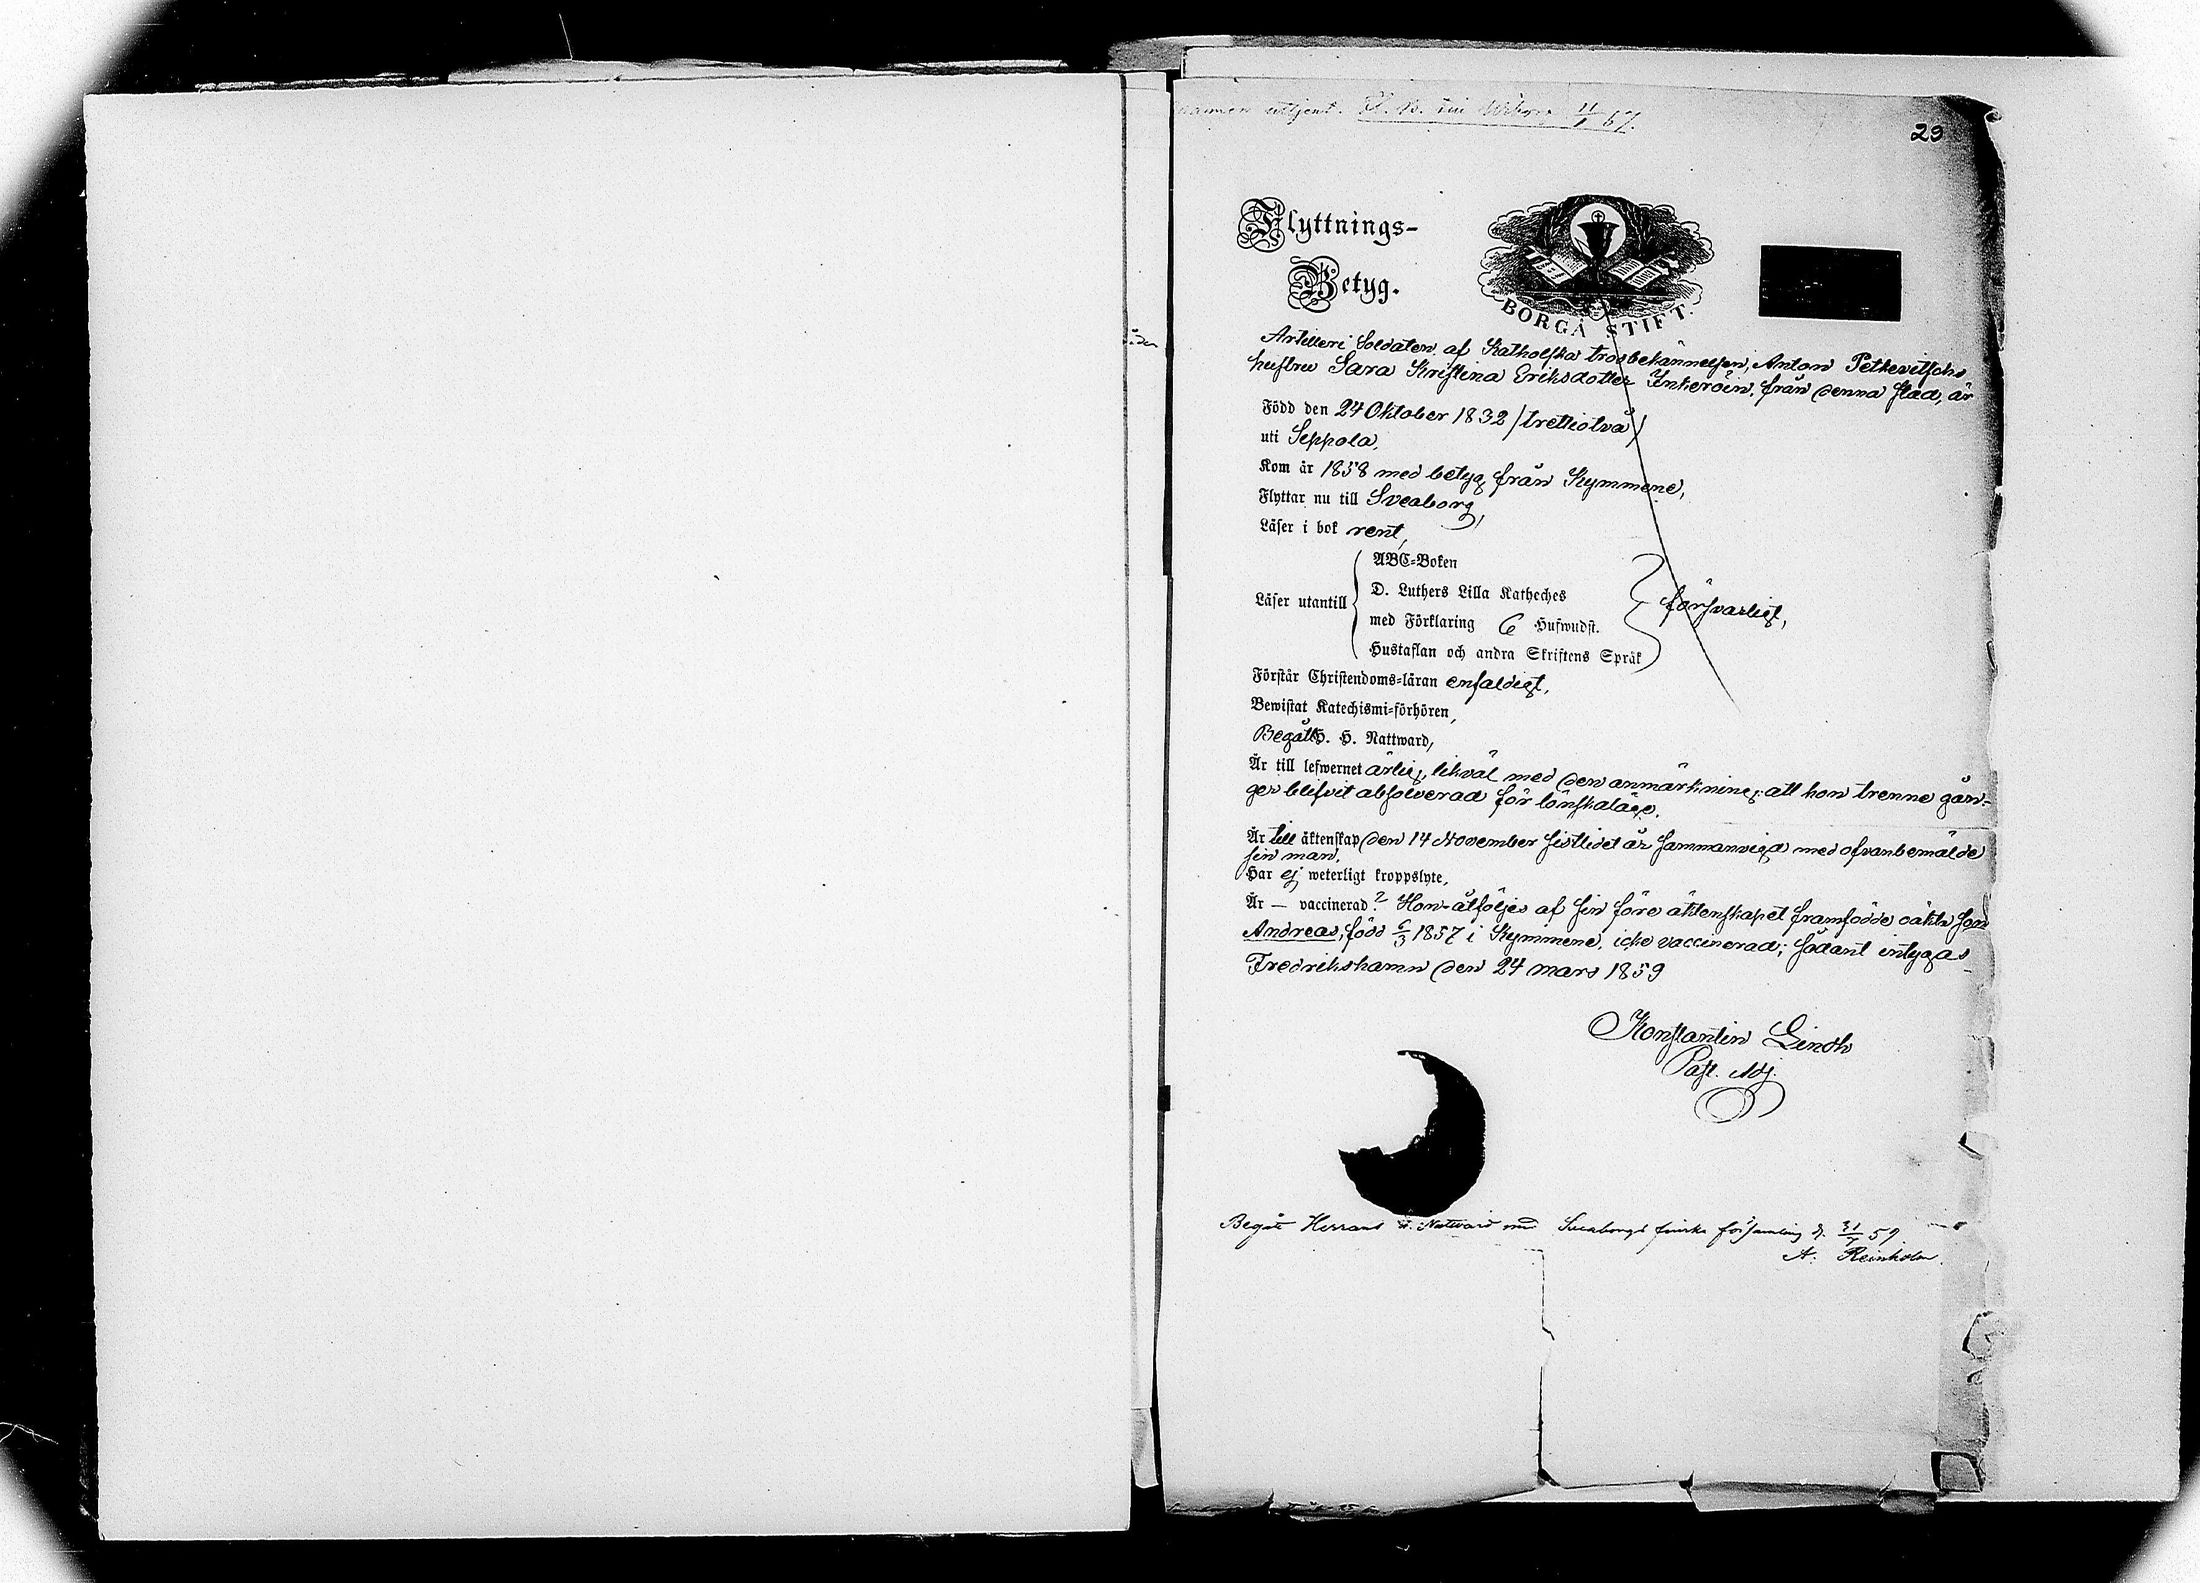 utljent. F. B. till Wiborg 11/1 67.
29
Flyttnings-
Betyg.
BORGÅ STIFT.
Artilleri Soldaten, af Katholska trosbekännelsen, Anton Petkevitschs
hustru Sara Kristina Eriksdotter Inkeroin, från denna stad, är
Född den 24 Oktober 1832 /trettiotvå/
uti Seppola,
Kom år 1858 med betyg från Kymmene,
Flyttar nu till Sveaborg,
Läser i bok rent,
Läser utantill
ABC-Boken
D. Luthers Lilla Katheches
med Förklaring 6 Hufwudst.
Hustaflan och andra Skriftens Språk
försvarligt,
Förstår Christendoms-läran enfaldigt,
Bewistat Katechismi-förhören,
Begått H. H. Nattward,
Är till lefwernet ärlig, likväl med den anmärkning, att hon trenne gån-
ger blifvit absolverad för lönskaläge,
Är till äktenskap den 14 November sistlidet år sammanvigd med ofvanbemälde
sin man,
Har ej weterligt kroppslyte,
Är — vaccinerad? Hon åtföljes af sin före äktenskapet framfödde oäkta son
Andreas, född 6/3 1857 i Kymmene, icke vaccinerad; sådant intygas
Fredrikshamn den 24 mars 1859
Konstantin Lindh
Past. Adj.
Begått Herrans H. Nattvard med Sveaborgs finska församling d. 31/7 59.
A. Reinholm.